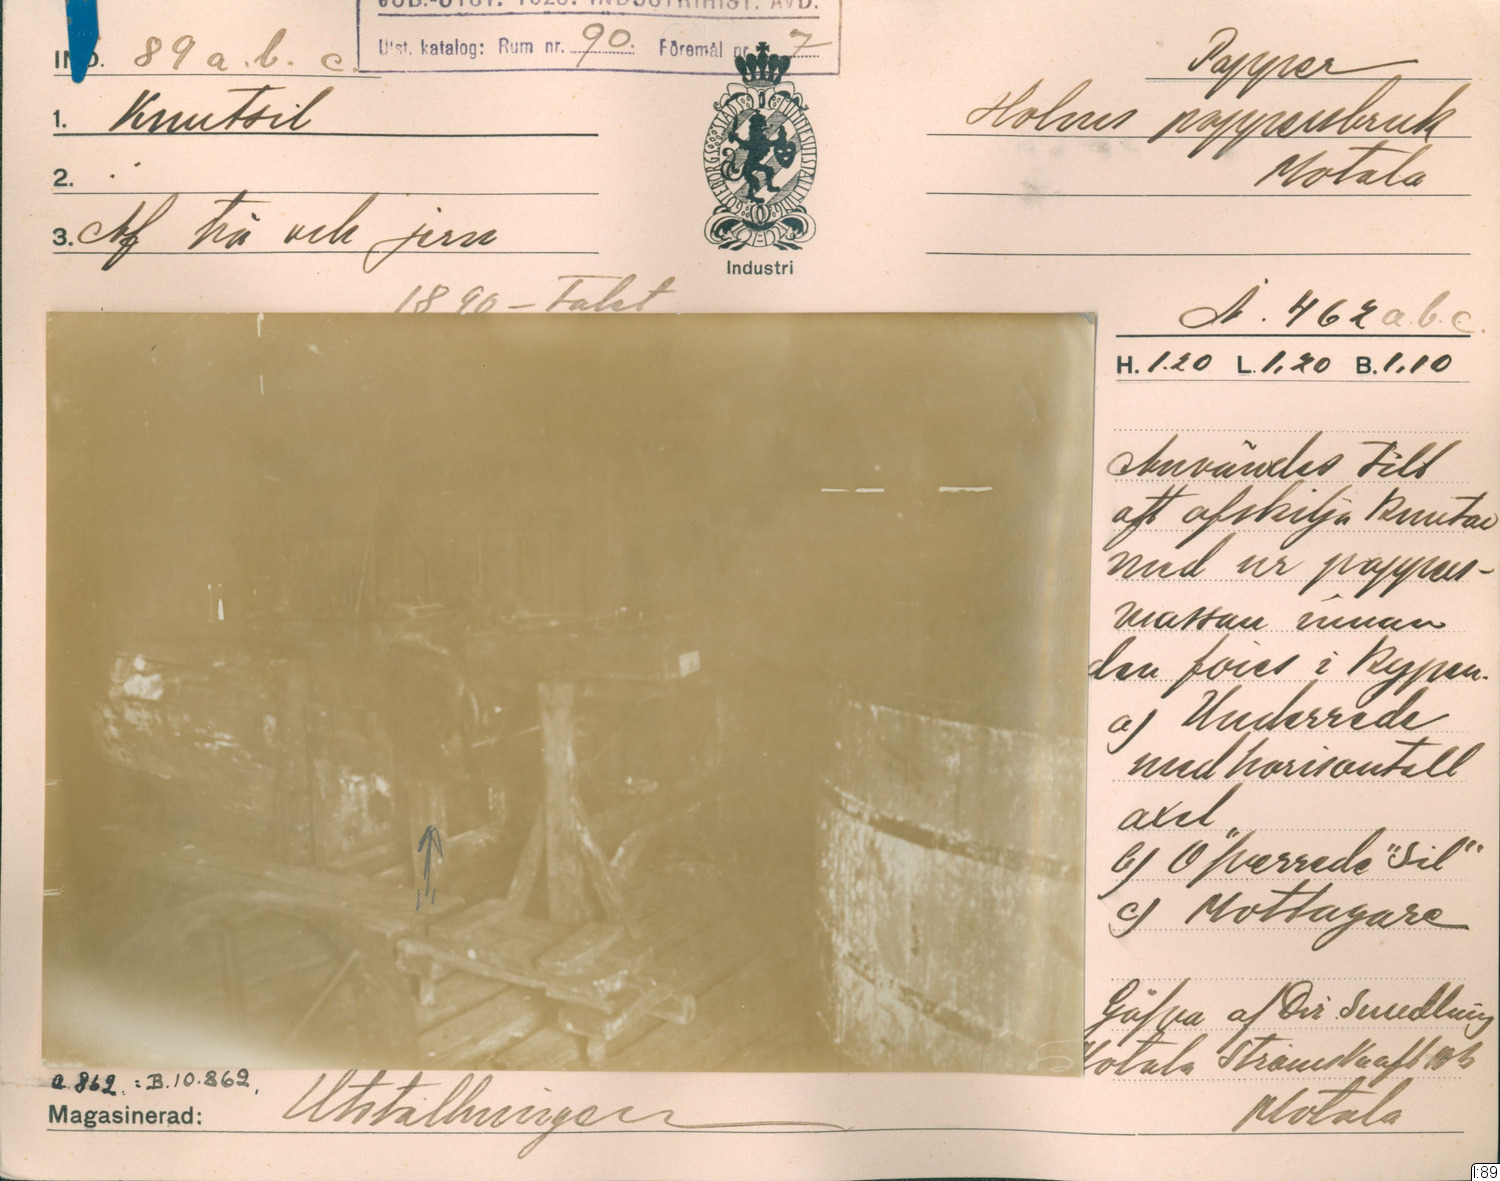 JUB.-UTST. 1923. INDUSTRIHIST. AVD.
Utst. katalog: Rum nr. 90. Föremål nr 7
IND. 89 a. b. c.
1. Knutsil
2.
3. Af trä och jern
1890-Talet
GÖTEBORGS STADS MINNESUTSTÄLLNING
Industri
Papper
Holms pappersbruk
Motala
N. 462 a. b. c.
H. 1.20 L. 1,20 B. 1,10
Användes till
att afskilja Knutar
med ur pappers-
massan innan
den föres i Kypen.
a) Underrede
med horisontell
axel
b) Öfverrede "Sil"
c) Mottagare
Gåfva af Dir Smedling
Motala Strömkraft AB
Motala
a 862. : B.10.862.
Magasinerad: Utställningen
I:89